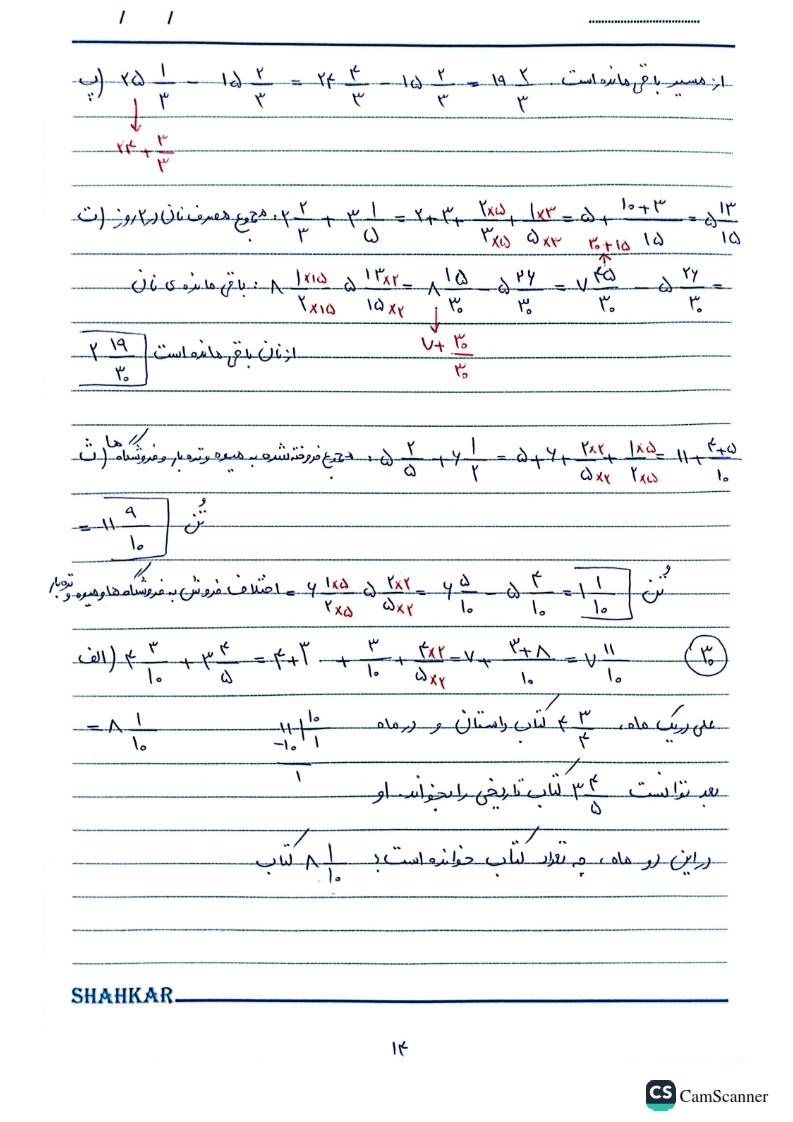 / /
پ) ۲۵ ۱/۳ - ۱۵ ۲/۳ = ۲۴ ۴/۳ - ۱۵ ۲/۳ = ۱۹ ۲/۳ از مسیر باقی مانده است.
۲۴ + ۳/۳
ت) مجموع مصرف نان در ۲ روز: ۲ ۲/۳ + ۳ ۱/۵ = ۲+۳+ ۲×۵/۳×۵ + ۱×۳/۵×۳ = ۵+ ۱۰+۳/۱۵ = ۵ ۱۳/۱۵
۳۰+۱۵
باقی مانده ی نان: ۸ ۱×۱۵/۲×۱۵ - ۵ ۱۳×۲/۱۵×۲ = ۸ ۱۵/۳۰ - ۵ ۲۶/۳۰ = ۷ ۴۵/۳۰ - ۵ ۲۶/۳۰ =
۷+ ۳۰/۳۰
۲ ۱۹/۳۰ از نان باقی مانده است
ث) مجموع فروخته شده به میوه و تره بار و فروشگاه ها: ۵ ۲/۵ + ۶ ۱/۲ = ۵+۶+ ۲×۲/۵×۲ + ۱×۵/۲×۵ = ۱۱+ ۴+۵/۱۰
= ۱۱ ۹/۱۰ تُن
اختلاف فروش به فروشگاه ها و میوه و تره بار = ۶ ۱×۵/۲×۵ - ۵ ۲×۲/۵×۲ = ۶ ۵/۱۰ - ۵ ۴/۱۰ = ۱ ۱/۱۰ تُن
۳۰ الف) ۴ ۳/۱۰ + ۳ ۴/۵ = ۴+۳ + ۳/۱۰ + ۴×۲/۵×۲ = ۷+ ۳+۸/۱۰ = ۷ ۱۱/۱۰
= ۸ ۱/۱۰
۱۱ | ۱۰
-۱۰ | ۱
۱
علی در یک ماه، ۴ ۳/۴ کتاب داستان و در ماه
بعد توانست ۳ ۴/۵ کتاب تاریخی را بخواند. او
در این دو ماه، چه تعداد کتاب خوانده است؟ ۸ ۱/۱۰ کتاب
SHAHKAR
۱۴
CS CamScanner